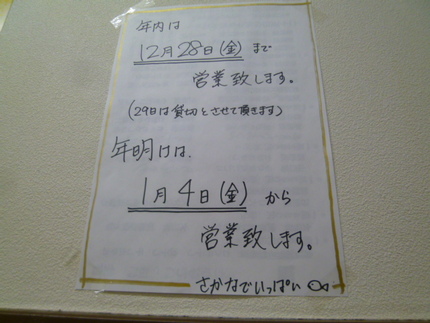 年内は
12月28日(金)まで
営業致します。
(29日は貸切とさせて頂きます)
年明けは、
1月4日(金)から
営業致します。
さかなでいっぱい